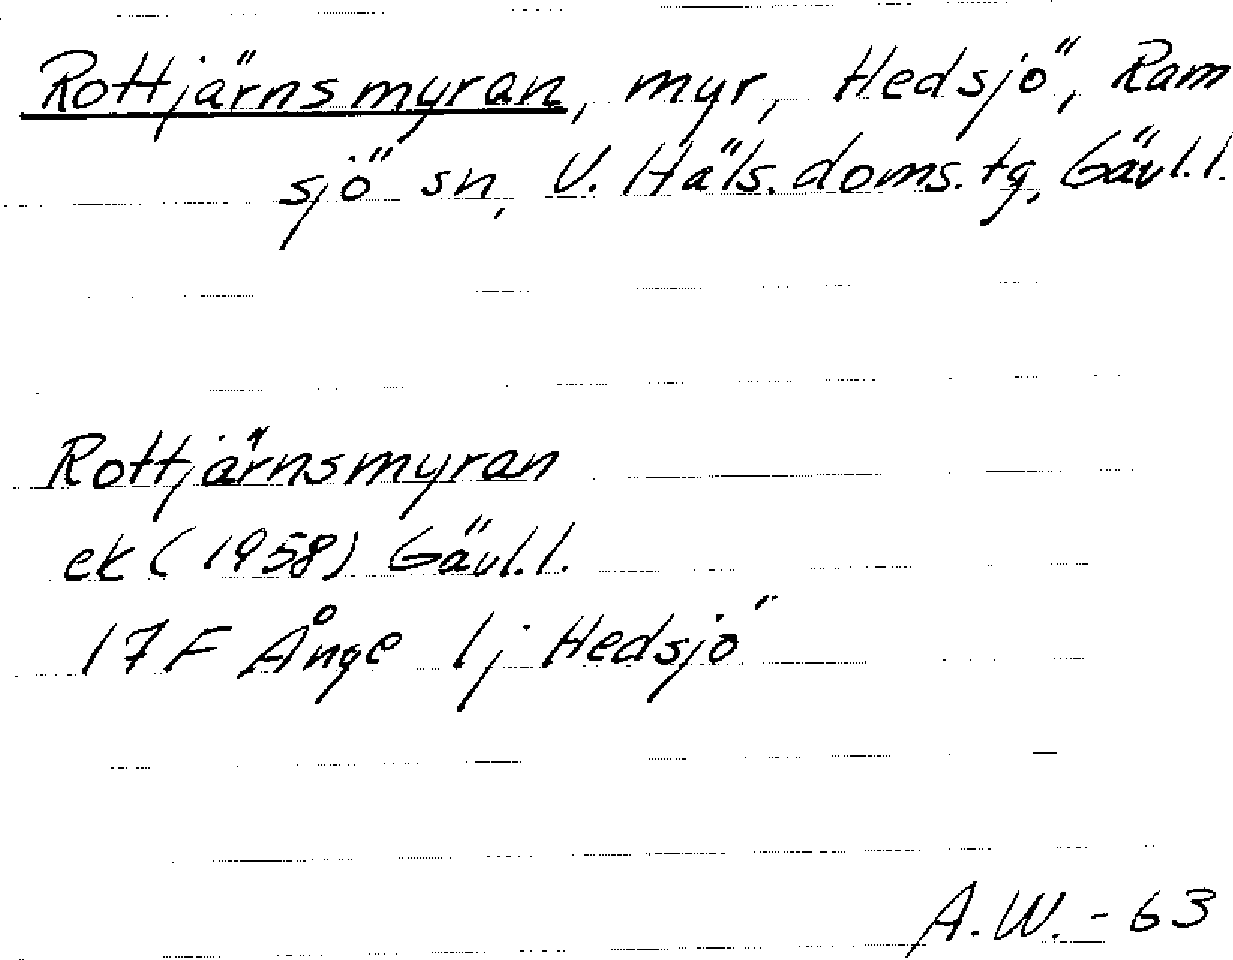 Rottjärnsmyran, myr, Hedsjö, Ram
sjö sn, V. Häls. doms. tg, Gävl.l.
Rottjärnsmyran
ek (1958) Gävl.l.
17F Ånge 1j Hedsjö
A.W. - 63